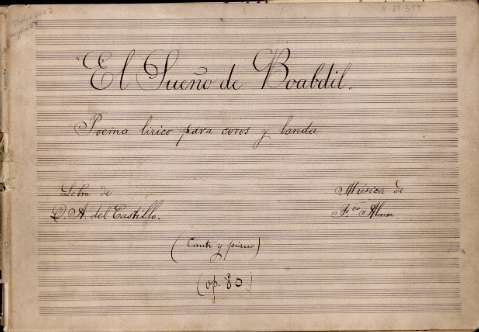 El Sueño de Boabdil.
Poema lírico para coros y banda
Letra de
D. A. del Castillo.
Música de
F.co Alonso
(Canto y piano)
(op. 80)